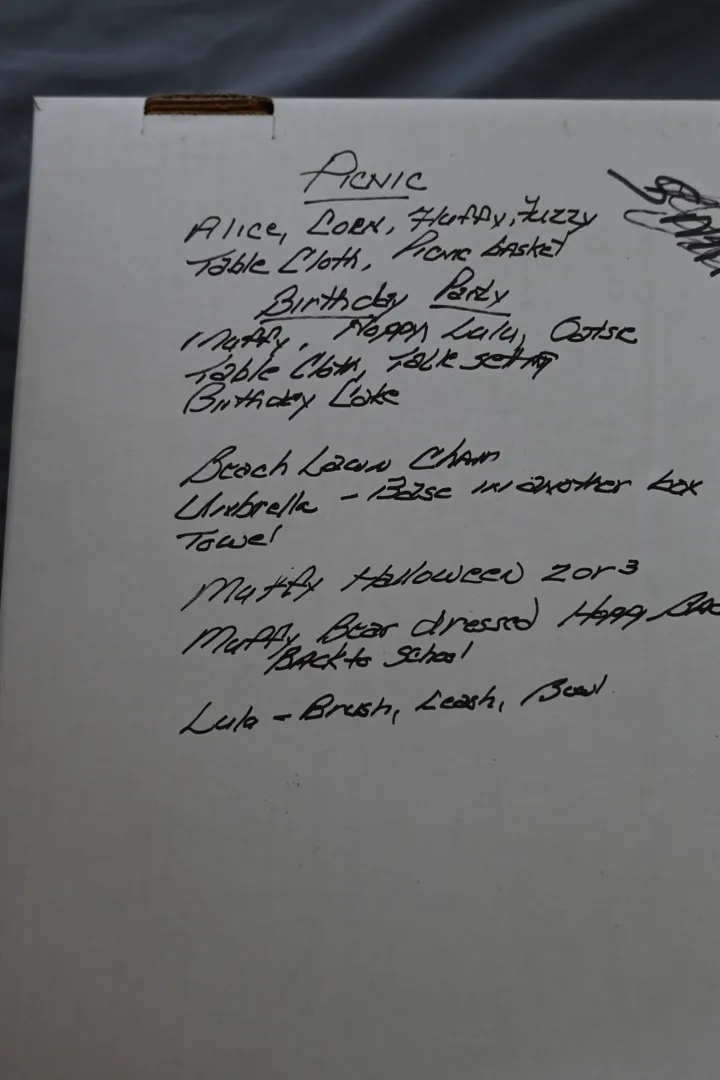 Picnic
Alice, Cora, Fluffy, Fuzzy
Table Cloth, Picnic basket
Birthday Party
Muffy, Hoppy, Lulu,
Table Cloth, Table setting
Birthday Cake
Beach Lawn Chair
Umbrella - Base in another box
Towel
Muffy Halloween 2 or 3
Muffy Bear dressed Hoppy
Back to School
Lulu - Brush, Leash, Bowl